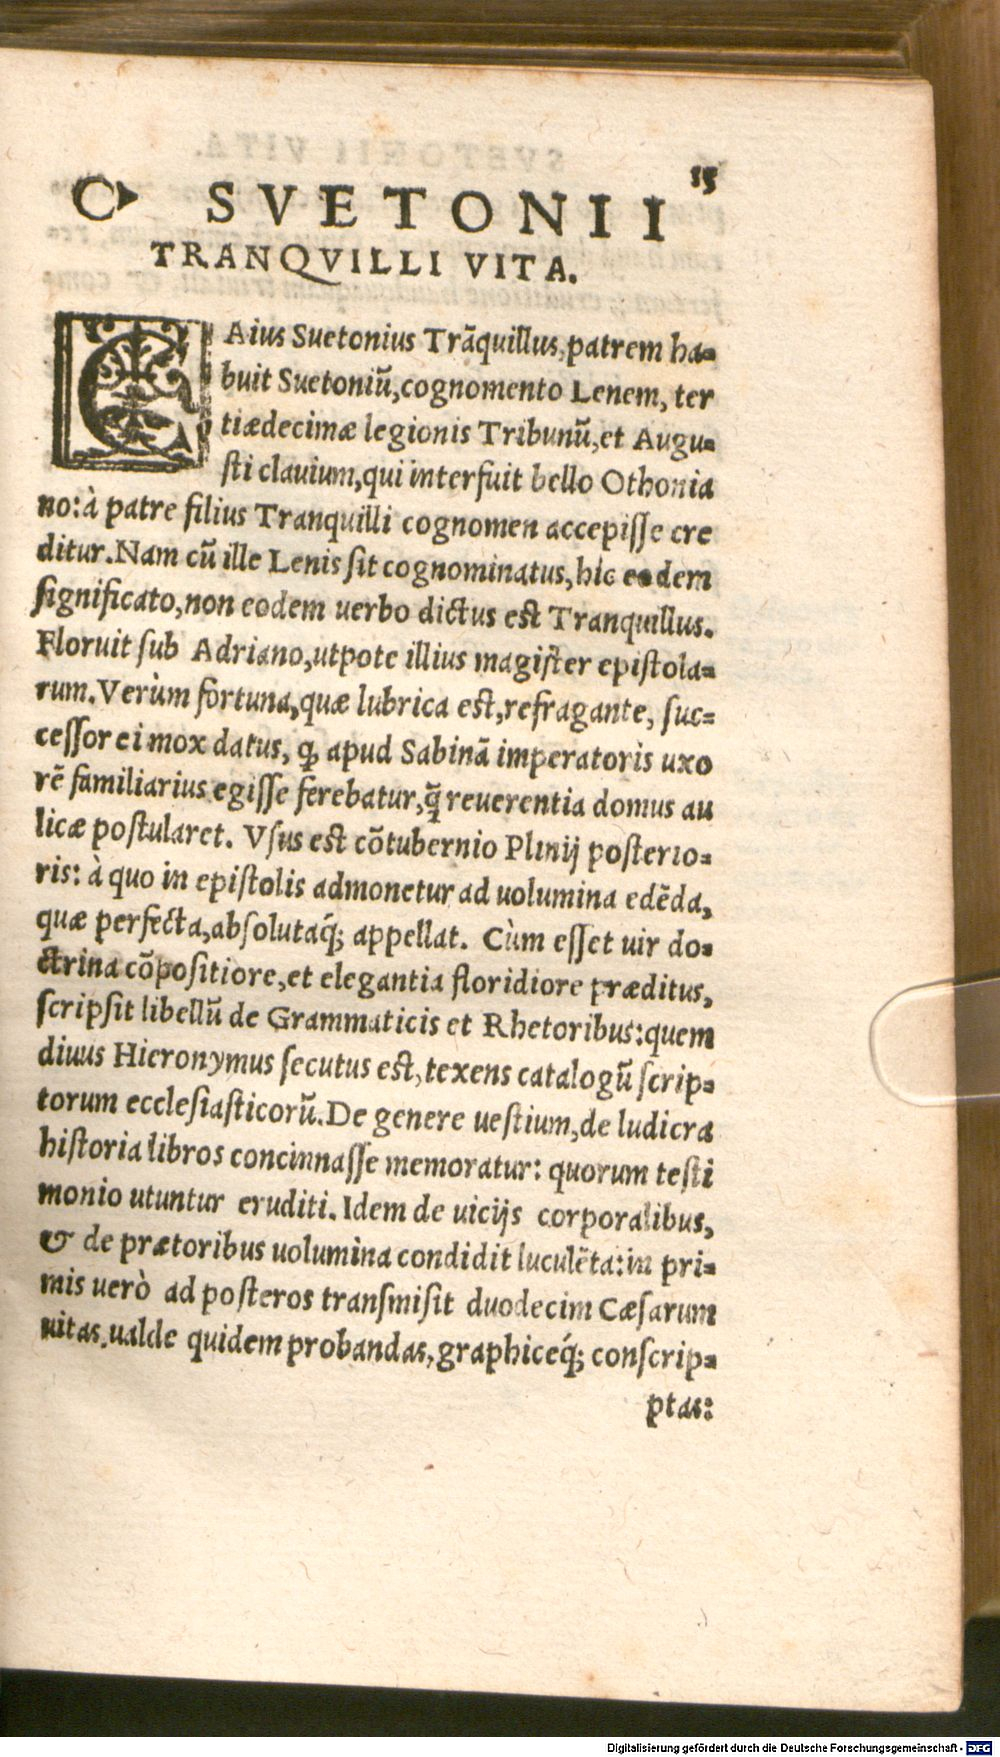 15
C. SVETONII
TRANQVILLI VITA.
CAius Suetonius Trāquillus, patrem ha-
buit Suetoniū, cognomento Lenem, ter
tiædecimæ legionis Tribunū, et Augu-
sti clauium, qui interfuit bello Othonia
no: à patre filius Tranquilli cognomen accepisse cre
ditur. Nam cū ille Lenis sit cognominatus, hic eodem
significato, non eodem uerbo dictus est Tranquillus.
Floruit sub Adriano, utpote illius magister epistola-
rum. Verùm fortuna, quæ lubrica est, refragante, suc-
cessor ei mox datus, ꝙ apud Sabinā imperatoris uxo
rē familiarius egisse ferebatur, q̄̃ reuerentia domus au
licæ postularet. Vsus est cōtubernio Plinij posterio-
ris: à quo in epistolis admonetur ad uolumina edēda,
quæ perfecta, absolutaq́; appellat. Cùm esset uir do-
ctrina cōpositiore, et elegantia floridiore præditus,
scripsit libellū de Grammaticis et Rhetoribus: quem
diuus Hieronymus secutus est, texens catalogū scrip-
torum ecclesiasticorū. De genere uestium, de ludicra
historia libros concinnasse memoratur: quorum testi
monio utuntur eruditi. Idem de uicijs corporalibus,
& de prætoribus uolumina condidit luculēta: in pri-
mis uerò ad posteros transmisit duodecim Cæsarum
uitas, ualde quidem probandas, graphiceq́; conscrip-
ptas:
Digitalisierung gefördert durch die Deutsche Forschungsgemeinschaft - DFG